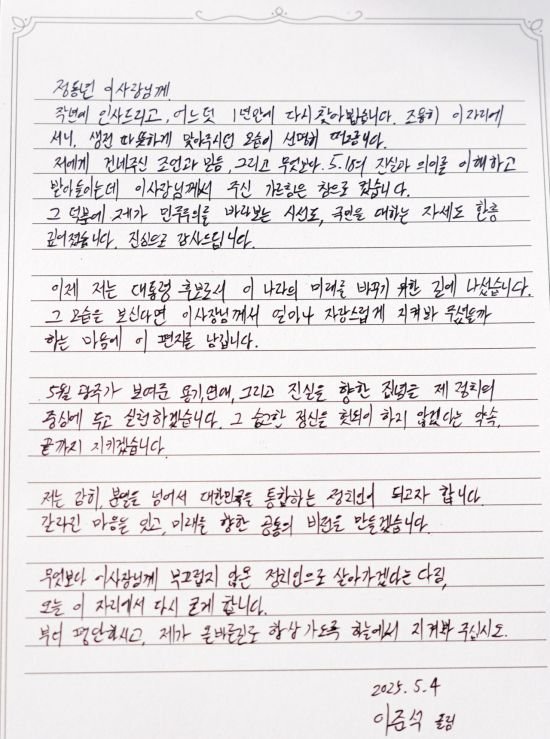 정동년 이사장님께.
작년에 인사드리고, 어느덧 1년만에 다시 찾아뵙습니다. 조용히 이 자리에
서니, 생전 따뜻하게 맞아주시던 모습이 선명히 떠오릅니다.
저에게 건네주신 조언과 믿음, 그리고 무엇보다. 5.18의 진실과 의미를 이해하고
받아들이는데 이사장님께서 주신 가르침은 참으로 컸습니다.
그 덕분에 제가 민주주의를 바라보는 시선도, 국민을 대하는 자세도 한층
깊어졌습니다. 진심으로 감사드립니다.
이제 저는 대통령 후보로서 이 나라의 미래를 바꾸기 위한 길에 나섰습니다.
그 모습을 보신다면 이사장님께서 얼마나 자랑스럽게 지켜봐 주셨을까
하는 마음에 이 편지를 남깁니다.
5월 광주가 보여준 용기, 연대, 그리고 진실을 향한 집념을 제 정치의
중심에 두고 실현하겠습니다. 그 숭고한 정신을 헛되이 하지 않겠다는 약속,
끝까지 지키겠습니다.
저는 감히, 분열을 넘어서 대한민국을 통합하는 정치인이 되고자 합니다.
갈라진 마음을 잇고, 미래를 향한 공동의 비전을 만들겠습니다.
무엇보다 이사장님께 부끄럽지 않은 정치인으로 살아가겠다는 다짐,
오늘 이 자리에서 다시 굳게 합니다.
부디 평안하시고, 제가 올바른길로 항상 가도록 하늘에서 지켜봐 주십시오.
2025. 5. 4
이준석 올림